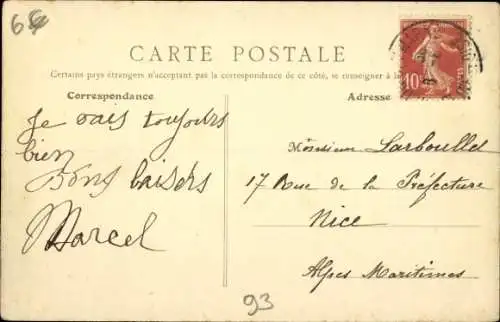 68
CARTE POSTALE
Certains pays étrangers n'acceptant pas la correspondance de ce côté, se renseigner à la
Correspondance
Adresse
10
Je vais toujours
bien
Bons baisers
Marcel
Monsieur Larboullet
17 Rue de la Préfecture
Nice
Alpes Maritimes
93